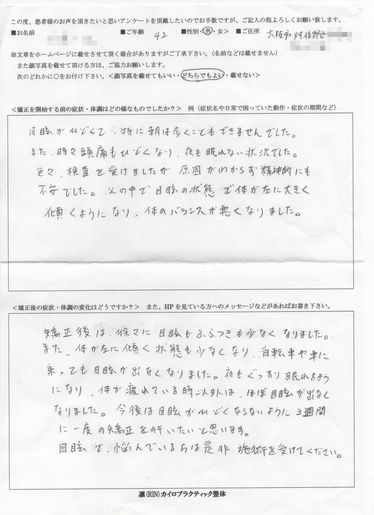 この度、患者様のお声を頂きたいと思いアンケートを頂戴したいのでお手数ですが、ご記入の程よろしくお願い致します。
■お名前 ■ご年齢 42 ■性別(男・女) ■ご住所 大阪市阿倍野区
※文章をホームページに載せさせて頂く場合がありますがご了承下さい。(名前などは載せません)
また顔写真を載せて頂ける方は、ご協力お願いします。
次のどれかに〇をお付け下さい。<顔写真を載せてもいい・どちらでもよい・載せない>
<矯正を開始する前の症状・体調はどの様なものでしたか?> 例(症状名や日常で困っていた動作・症状の期間など)
目眩がひどくて、特に朝は歩くこともできませんでした。
また、時々頭痛もひどくなり、夜も眠れない状況でした。
色々、検査を受けましたが原因がわからず精神的にも
不安でした。その中で目眩の状態で体が左に大きく
傾くようになり、体のバランスが悪くなりました。
<矯正後の症状・体調の変化はどうですか?> また、HPを見ている方へのメッセージなどがあればお書き下さい。
矯正後は、徐々に目眩もふらつきも少なくなりました。
また、体が左に傾く状態も少なくなり、自転車や車に
乗っても目眩が出なくなりました。夜もぐっすり眠れるよう
になり、体が疲れている時以外は、ほぼ目眩が出なく
なりました。今後は目眩がひどくならないように3週間
に一度の矯正を行いたいと思います。
目眩で、悩んでいる方は是非、施術を受けてください。
凛(RIN)カイロプラクティック整体